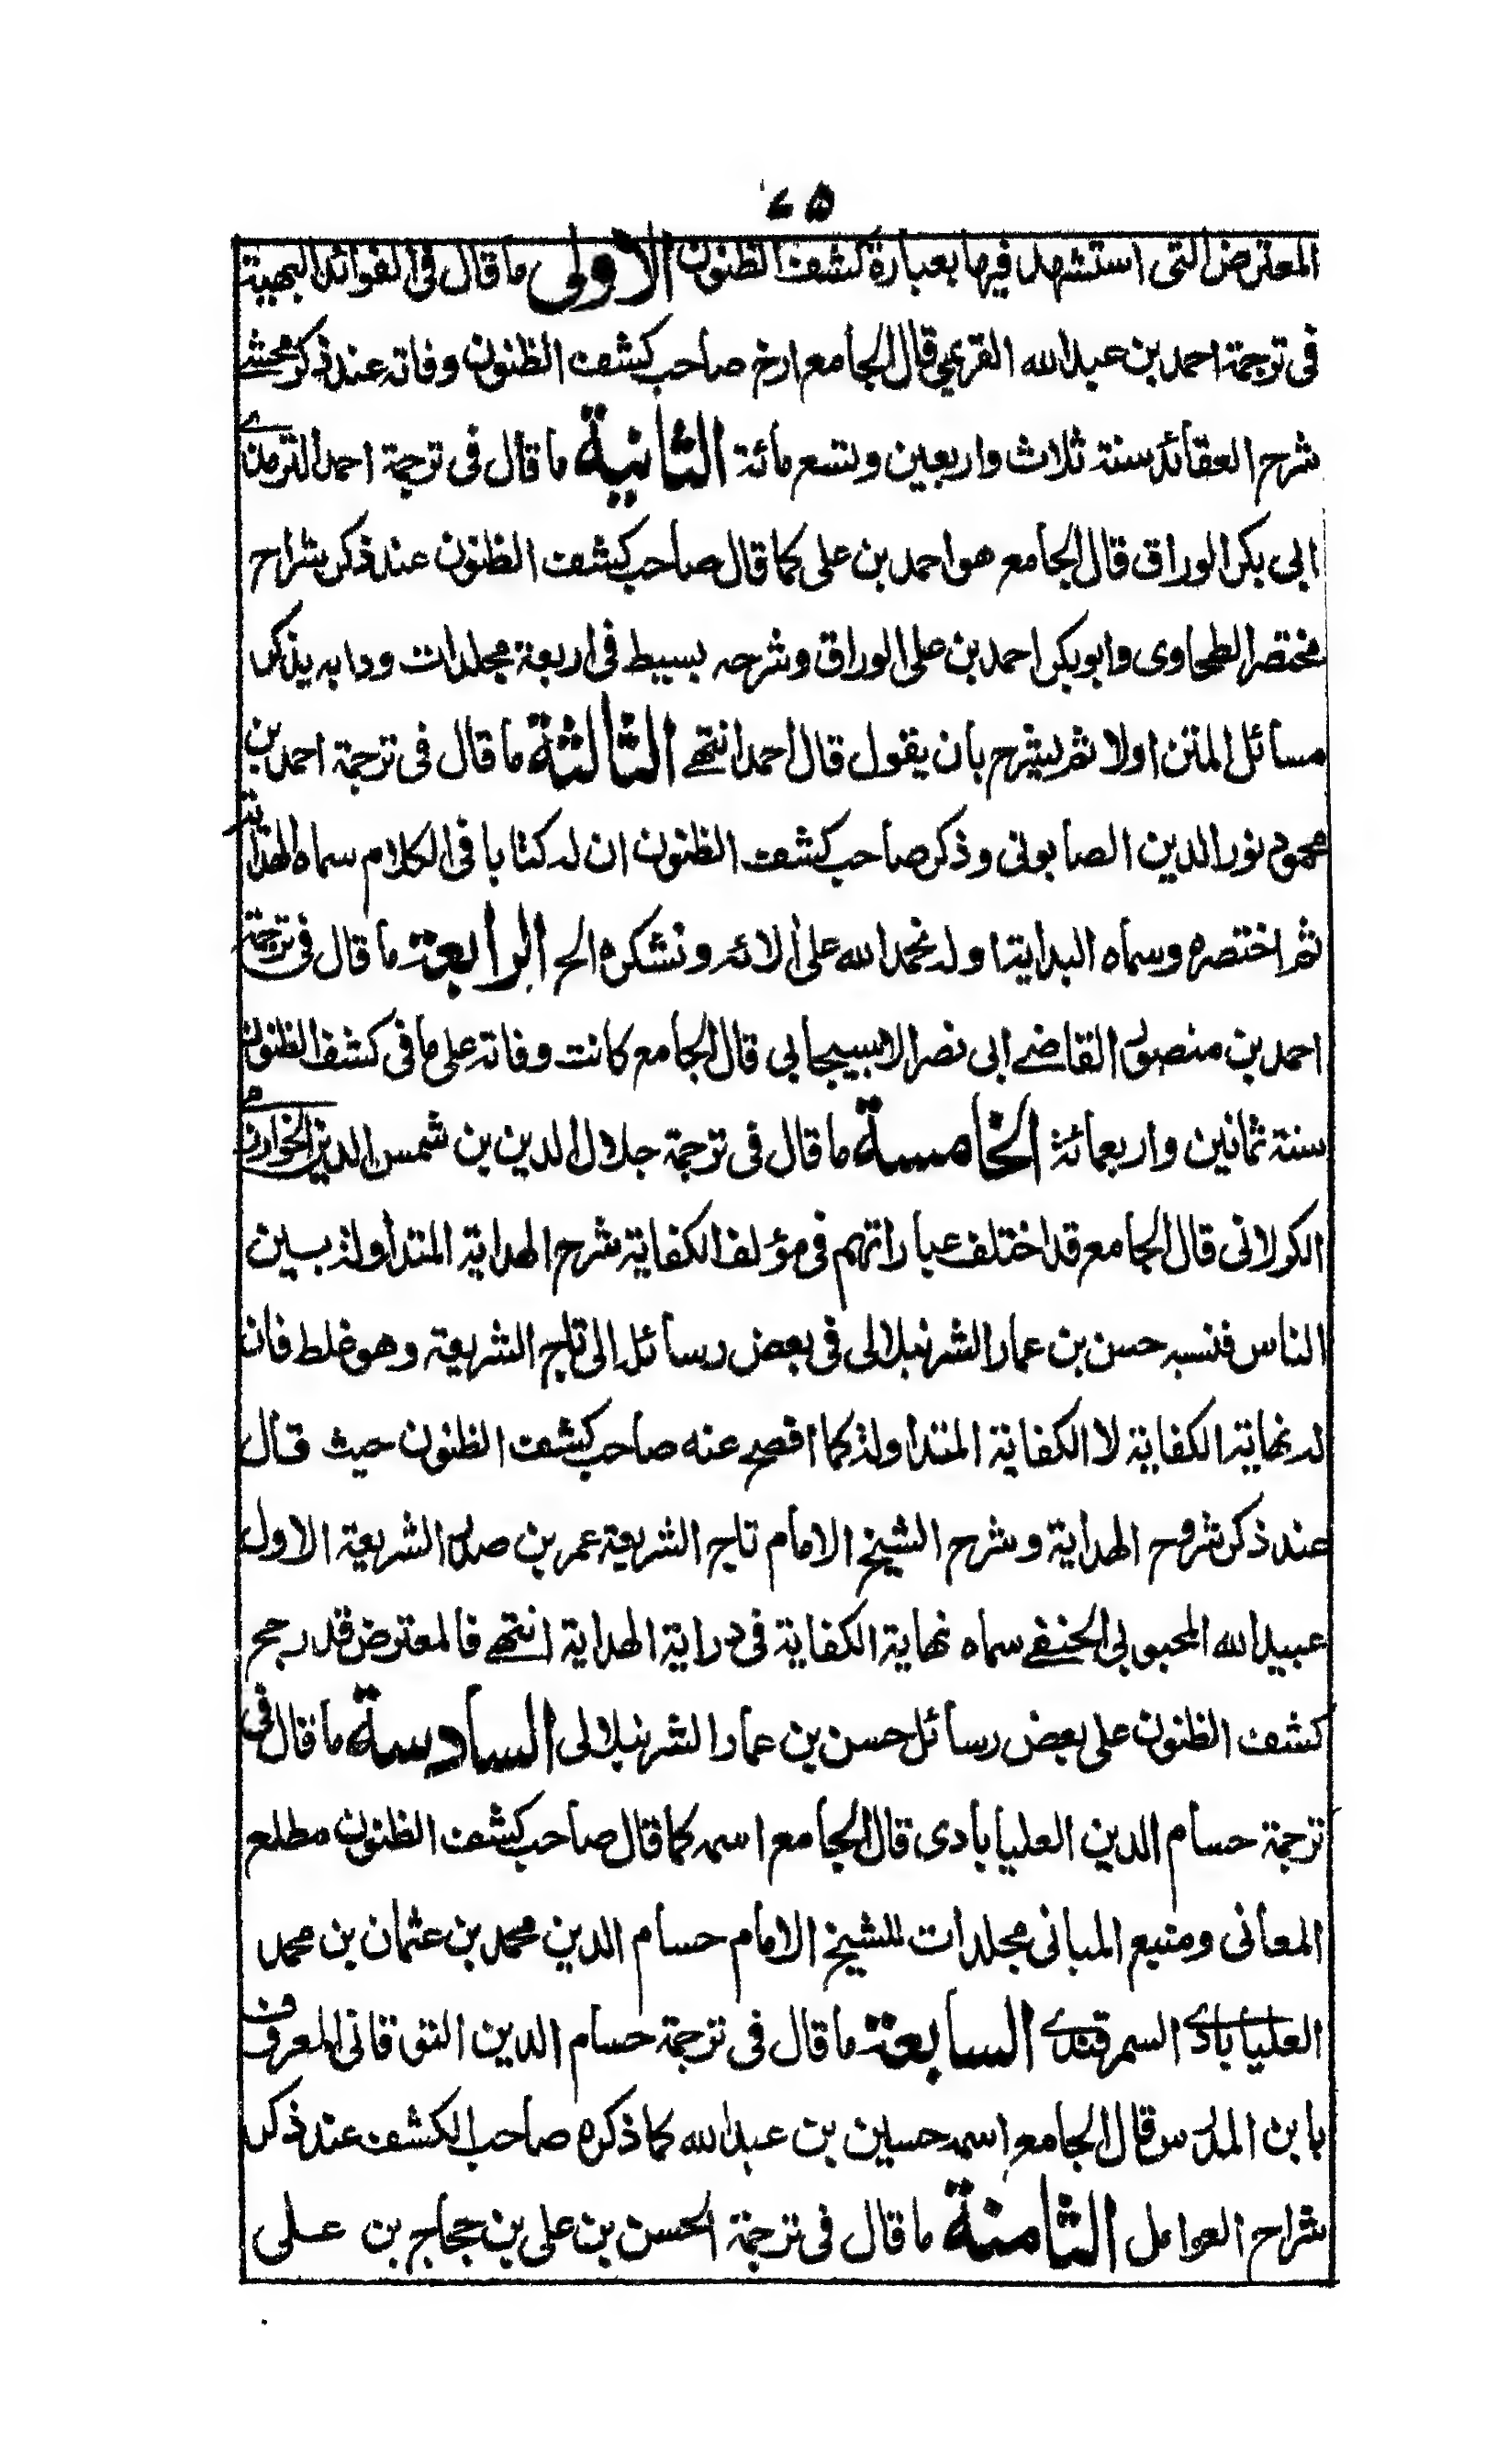 ٧٥
المعترض التى استشهد فيها بعبارة كشف الظنون الاولى ما قال فى الفوائد البهية
فى ترجمة احمد بن عبد الله القريمي قال الجامع ارخ صاحب كشف الظنون وفاته عند ذكر محشى
شرح العقائد سنة ثلاث واربعين وتسع مائة الثانية ما قال فى ترجمة احمد الترمذى
ابى بكر الوراق قال الجامع هو احمد بن على كما قال صاحب كشف الظنون عند ذكر شراح
مختصر الطحاوى وابو بكر احمد بن على الوراق وشرحه بسيط فى اربعة مجلدات ودابه يذكر
مسائل المتن اولا ثم يشرح بان يقول قال احمد انتهى الثالثة ما قال فى ترجمة احمد بن
محمود نور الدين الصابونى وذكر صاحب كشف الظنون ان له كتابا فى الكلام سماه الهداية
ثم اختصره وسماه البداية اوله نحمد الله على الائه ونشكره الخ الرابعة ما قال فى ترجمة
احمد بن منصور القاضى ابى نصر الاسبيجابى قال الجامع كانت وفاته على ما فى كشف الظنون
سنة ثمانين واربعمائة الخامسة ما قال فى ترجمة جلال الدين بن شمس الدين الخوارزمى
الكولانى قال الجامع قد اختلف عباراتهم فى مؤلف الكفاية شرح الهداية المتداولة بين
الناس فنسبه حسن بن عمار الشرنبلالى فى بعض رسائله الى تاج الشريعة وهو غلط فان
له نهاية الكفاية لا الكفاية المتداولة كما افصح عنه صاحب كشف الظنون حيث قال
عند ذكر شروح الهداية وشرح الشيخ الامام تاج الشريعة عمر بن صدر الشريعة الاول
عبيد الله المحبوبى الحنفى سماه نهاية الكفاية فى دراية الهداية انتهى فالمعترض قد رجح
كشف الظنون على بعض رسائل حسن بن عمار الشرنبلالى السادسة ما قال فى
ترجمة حسام الدين العليابادى قال الجامع اسمه كما قال صاحب كشف الظنون مطلع
المعانى ومنبع المبانى مجلدات للشيخ الامام حسام الدين محمد بن عثمان بن محمد
العليابادى السمرقندى السابعة ما قال فى ترجمة حسام الدين التوقانى المعروف
بابن المدرس قال الجامع اسمه حسين بن عبد الله كما ذكره صاحب الكشف عند ذكر
شراح العوامل الثامنة ما قال فى ترجمة الحسن بن على بن حجاج بن على